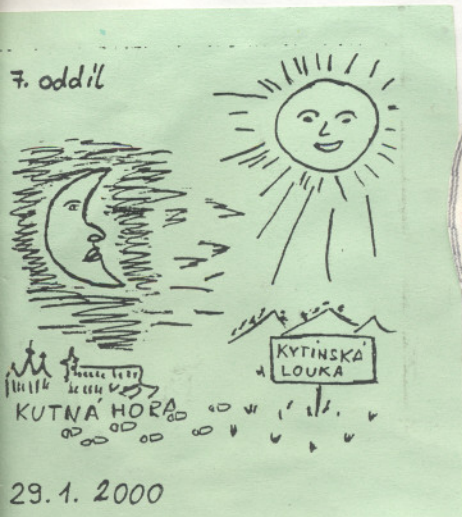 7. oddíl
KYTÍNSKÁ
LOUKA
KUTNÁ HORA
29.1. 2000